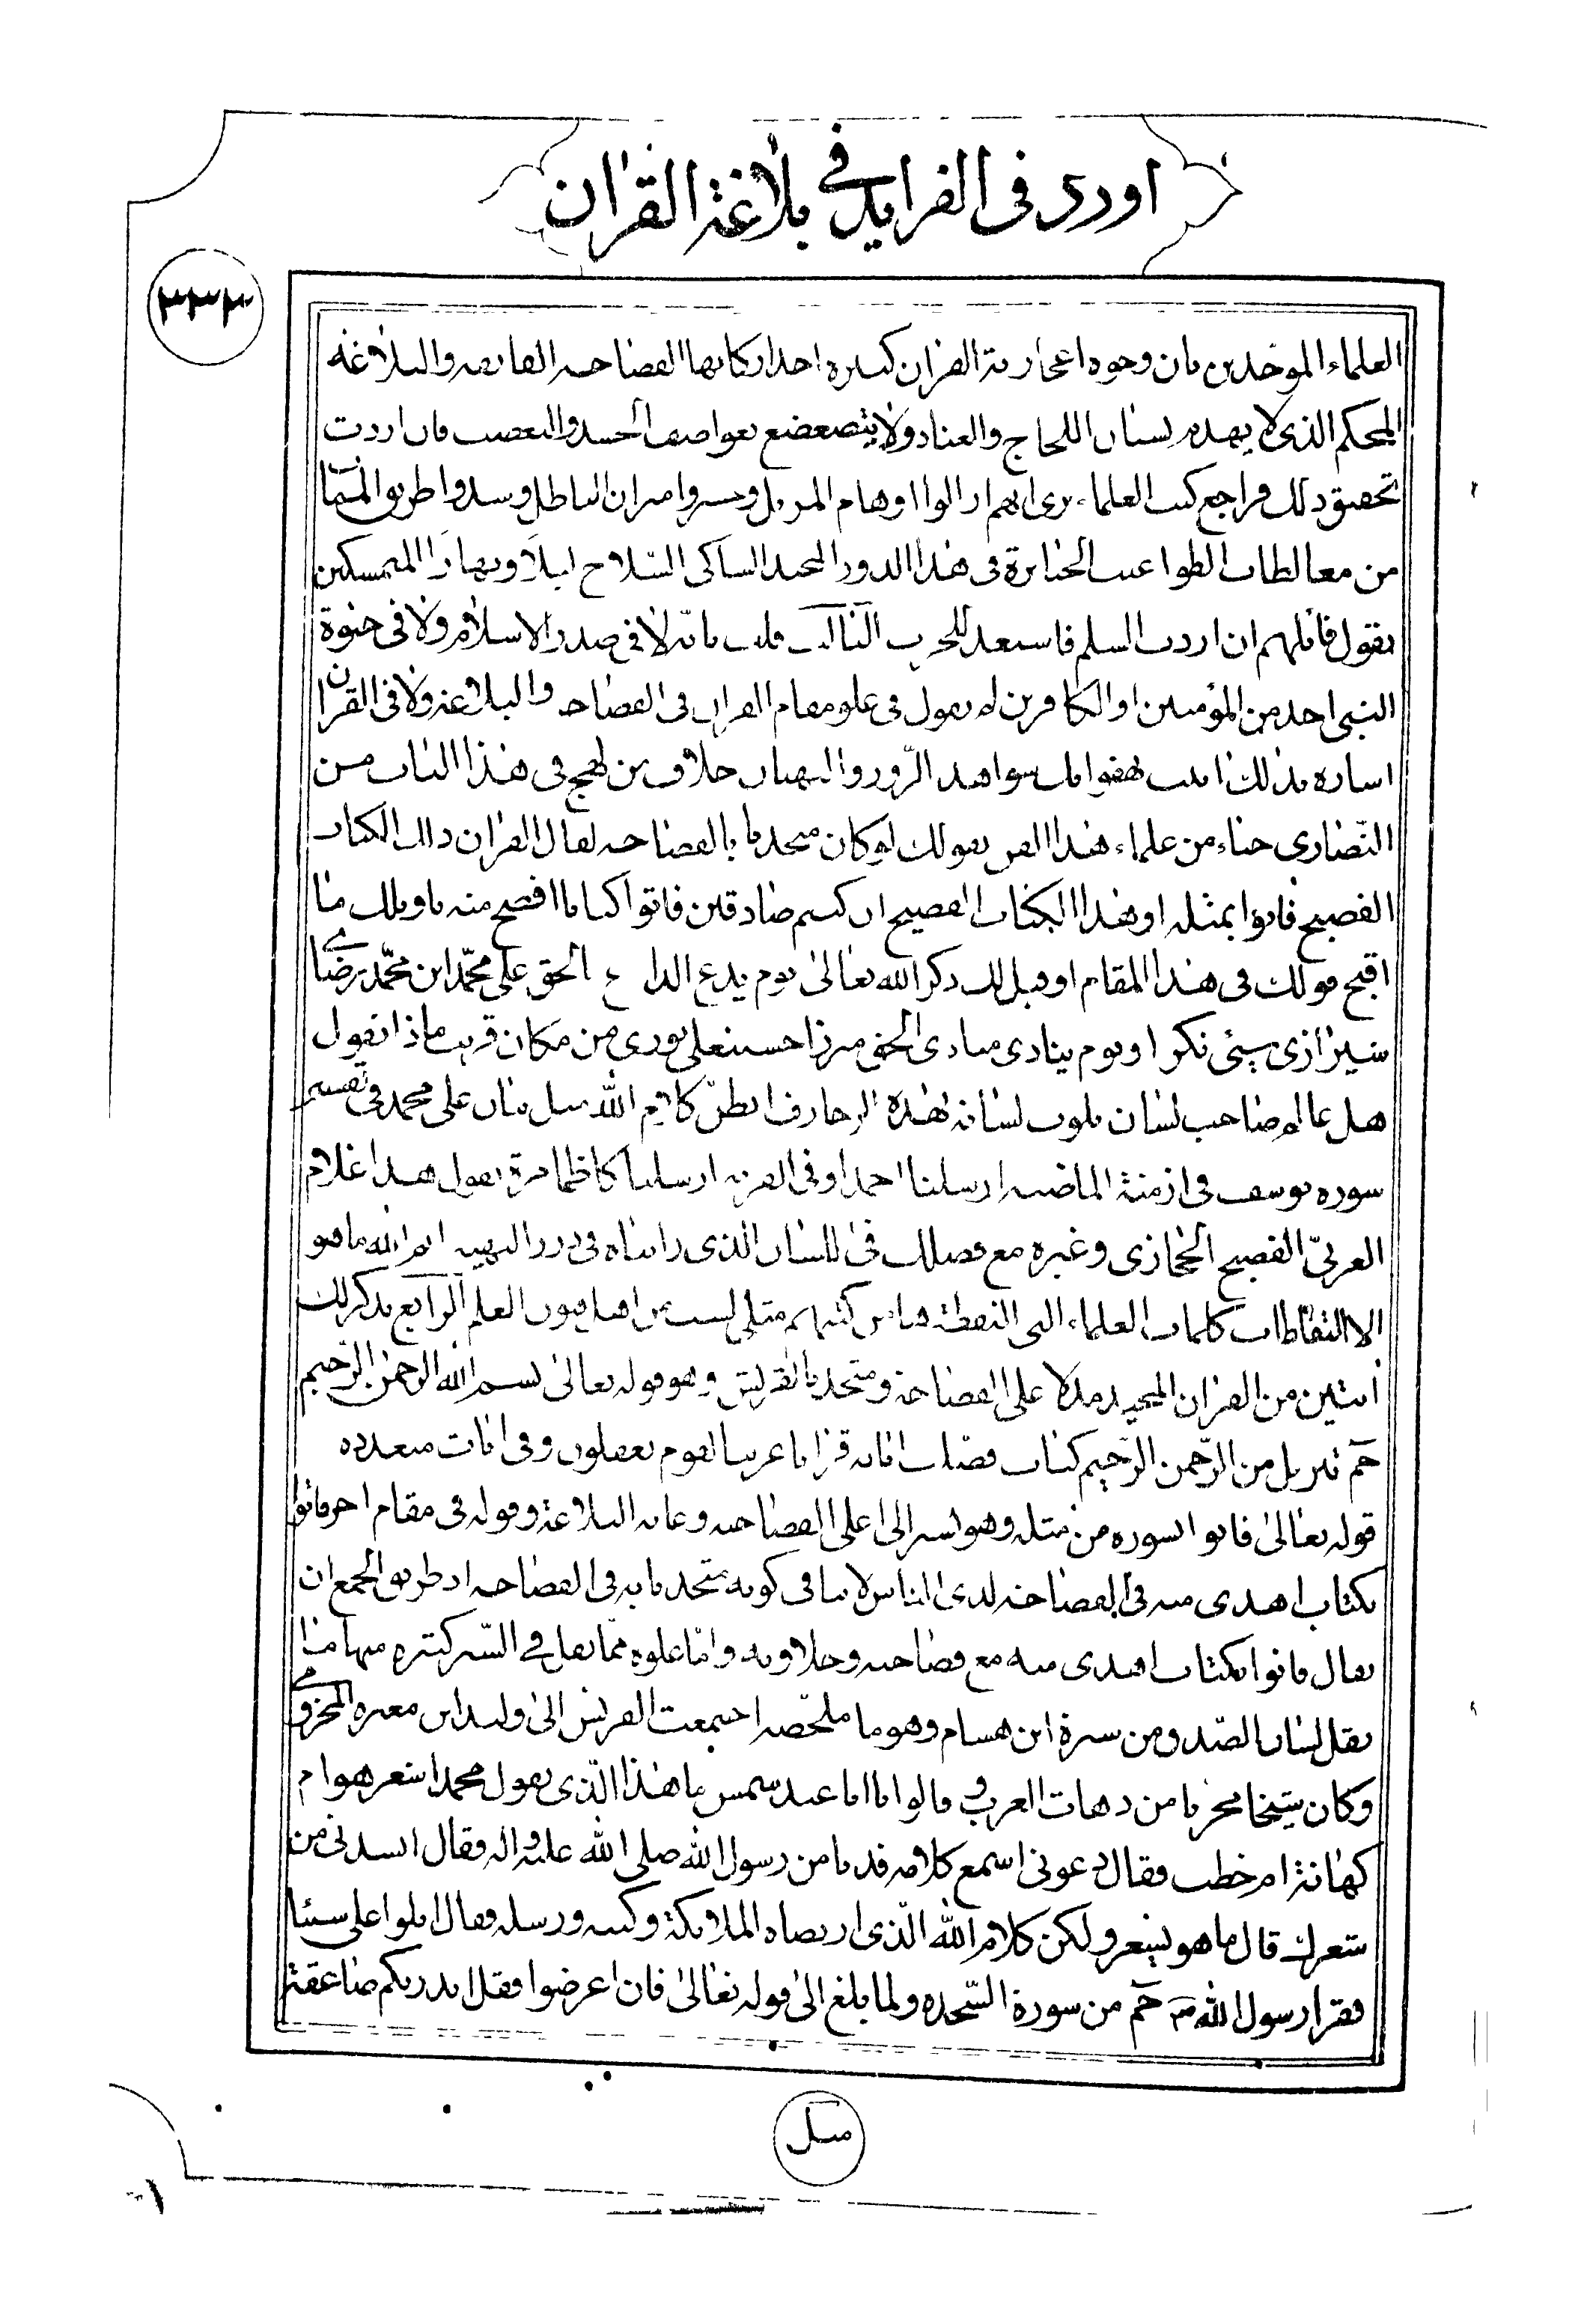 اوردی فی الفراید فی بلاغة القران
٣٣٣
العلماء الموحدین بان وجوه اعجازیة القران کثیرة احد ارکانها الفصاحه الفایقه والبلاغه
المحکم الذی لا یهدم بسنان اللجاج والعناد ولا یتضعضع بعواصف الحسد والتعصب فان اردت
تحقیق ذلک فراجع کتب العلماء تری انهم ازالوا اوهام المزیل وخسروا میزان الباطل وسدوا طریق
من مغالطات الطواغیت الجبابرة فی هذا الدور الجدید الساکی السلاح لیلا ونهارا المتمسکین
بقول قائلهم ان اردت السلم فاستعد للحرب قلت بانه لا فی صدر الاسلام ولا فی حیوة
النبی احد من المؤمنین او الکافرین له یقول فی علو مقام القران فی الفصاحه والبلاغة ولا فی القران
اشاره بذلک اتیت بهفوات شواهد الزور والبهتان خلاف من لهج فی هذا الباب من
النصاری حیاء من علماء هذا الفن بقولک لو کان متحدیا بالفصاحه لقال القران ذلک الکتاب
الفصیح فاتوا بمثله او هذا الکتاب الفصیح ان کنتم صادقین فاتوا کتابا افصح منه یا ویلک ما
اقبح قولک فی هذا المقام او قبل لک ذکر الله تعالی یوم یدع الداع الحق علی محمد ابن محمد رضای
شیرازی بشئ نکر او یوم ینادی منادی الحق میرزا حسینعلی نوری من مکان قریب ماذا تقول
هل عالم صاحب لسان یلوث لسانه بهذه الزخارف کلام الله مثل بیان علی محمد فی تفسیر
سوره یوسف فی ازمنة الماضیه ارسلنا احمدا وفی القریه ارسلنا کاظما مرة یقول هذا غلام
العربی الفصیح الحجازی وغیره مع فضلک فی اللسان الذی رایناه فی درر البهیه ما هو
الا التقاطات کلمات العلماء التی التقطتها من کتبهم مثلی لیست من اهل فنون العلم الرابع یذکر لک
ایتین من القران المجید مدلا علی الفصاحة ومتحدیا بالقریش وهو قوله تعالی بسم الله الرحمن الرحیم
حم تنزیل من الرحمن الرحیم کتاب فصلت ایاته قرانا عربیا لقوم یعقلون وفی ایات متعدده
قوله تعالی فاتوا بسوره من مثله وهو یشیر الی اعلی الفصاحه وغایه البلاغة وقوله فی مقام اخر فاتوا
بکتاب اهدی منه فی الفصاحة لدی الناس لا ینافی کونه متحدیا به فی الفصاحه اذ طریق الجمع ان
یقال فاتوا بکتاب اهدی منه مع فصاحته وحلاوته واما علوه مما یقل فی السیر کثیره منها ما
نقل لسان الصدق من سیرة ابن هشام وهو ما ملخصه اجتمعت القریش الی ولید ابن مغیره المخزومی
وکان شیخا مجربا من دهات العرب وقالوا یا ابا عبد شمس ما هذا الذی یقول محمد اشعر هو ام
کهانة ام خطب فقال دعونی اسمع کلامه فدنا من رسول الله صلی الله علیه واله وقال انشدنی من
شعرک قال ما هو بشعر ولکن کلام الله الذی ارتضاه الملائکة وکتبه ورسله وقال اتلوا علی شیئا
فقرا رسول الله حم من سورة السجده ولما بلغ الی قوله تعالی فان اعرضوا فقل انذرتکم صاعقة
مثل